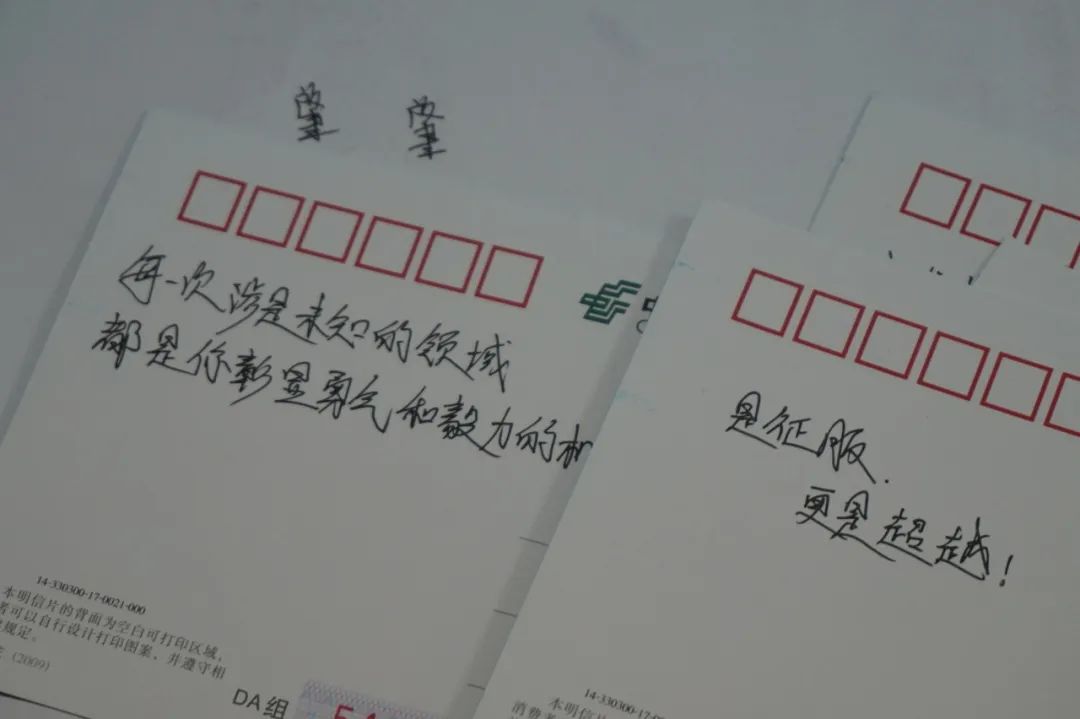 肇 肇
每一次涉足未知的领域
都是你彰显勇气和毅力的
14-330300-17-0021-000
本明信片的背面为空白可打印区域，
者可以自行设计打印图案，并遵守相
规定。
(2009)
DA组
是征服.
更是超越!
14-330300-17
本明信片
消费者